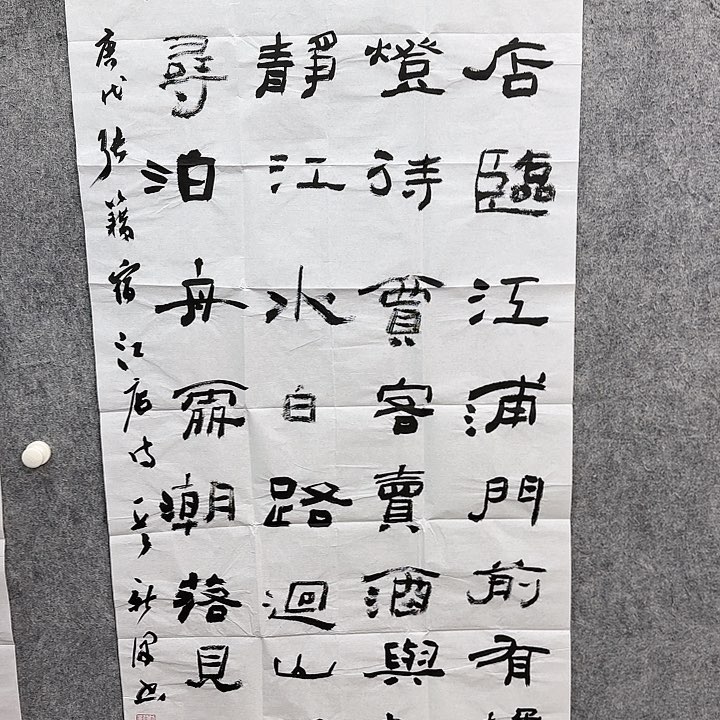 店臨江浦門前有
燈待賈客賣酒與
靜江水白路迴山
尋泊舟潮落見
唐代張籍宿江店诗